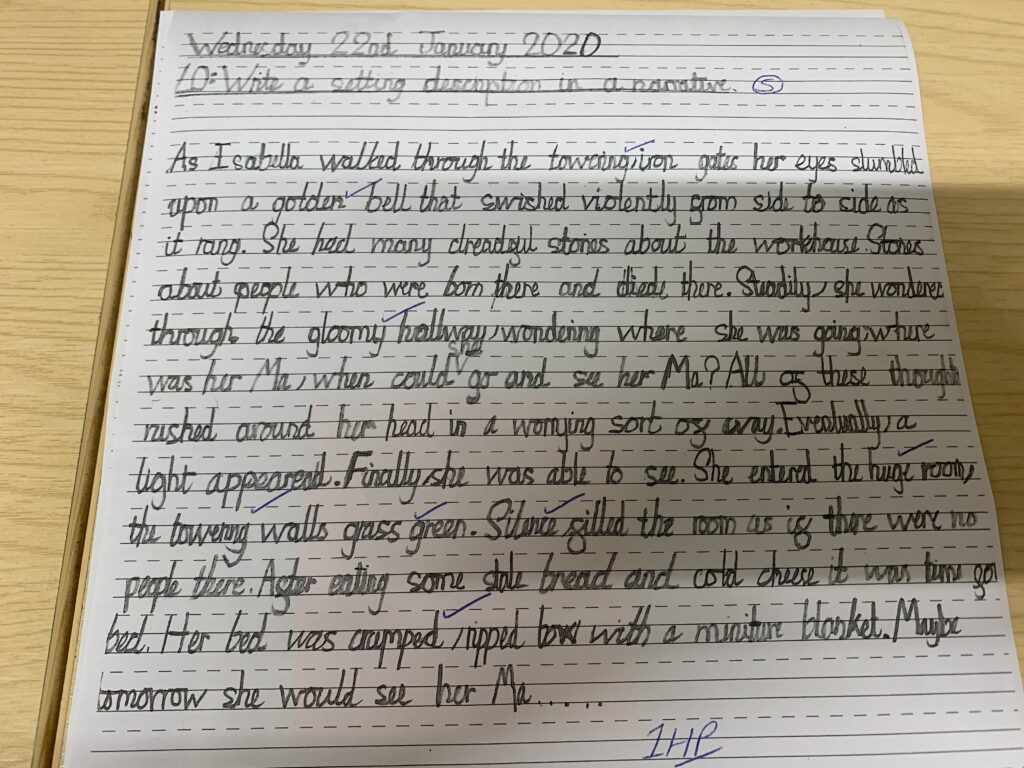 Wednesday 22nd January 2020
LO: Write a setting description in a narrative. S
As Isabella walked through the towering, iron gates her eyes stumbled
upon a golden bell that swished violently from side to side as
it rang. She had many dreadful stories about the workhouse. Stories
about people who were born there and diede there. Steadily, she wonderer
through the gloomy hallway, wondering where she was going, where
was her Ma, when could she go and see her Ma? All of these thoughts
rushed around her head in a worrying sort of way. Eventually, a
light appeared. Finally, she was able to see. She entered the huge room,
the towering walls grass green. Silence filled the room as if there were no
people there. After eating some stale bread and cold cheese it was time go
bed. Her bed was cramped, ripped box with a miniture blanket. Maybe
tomorrow she would see her Ma.....
1HP